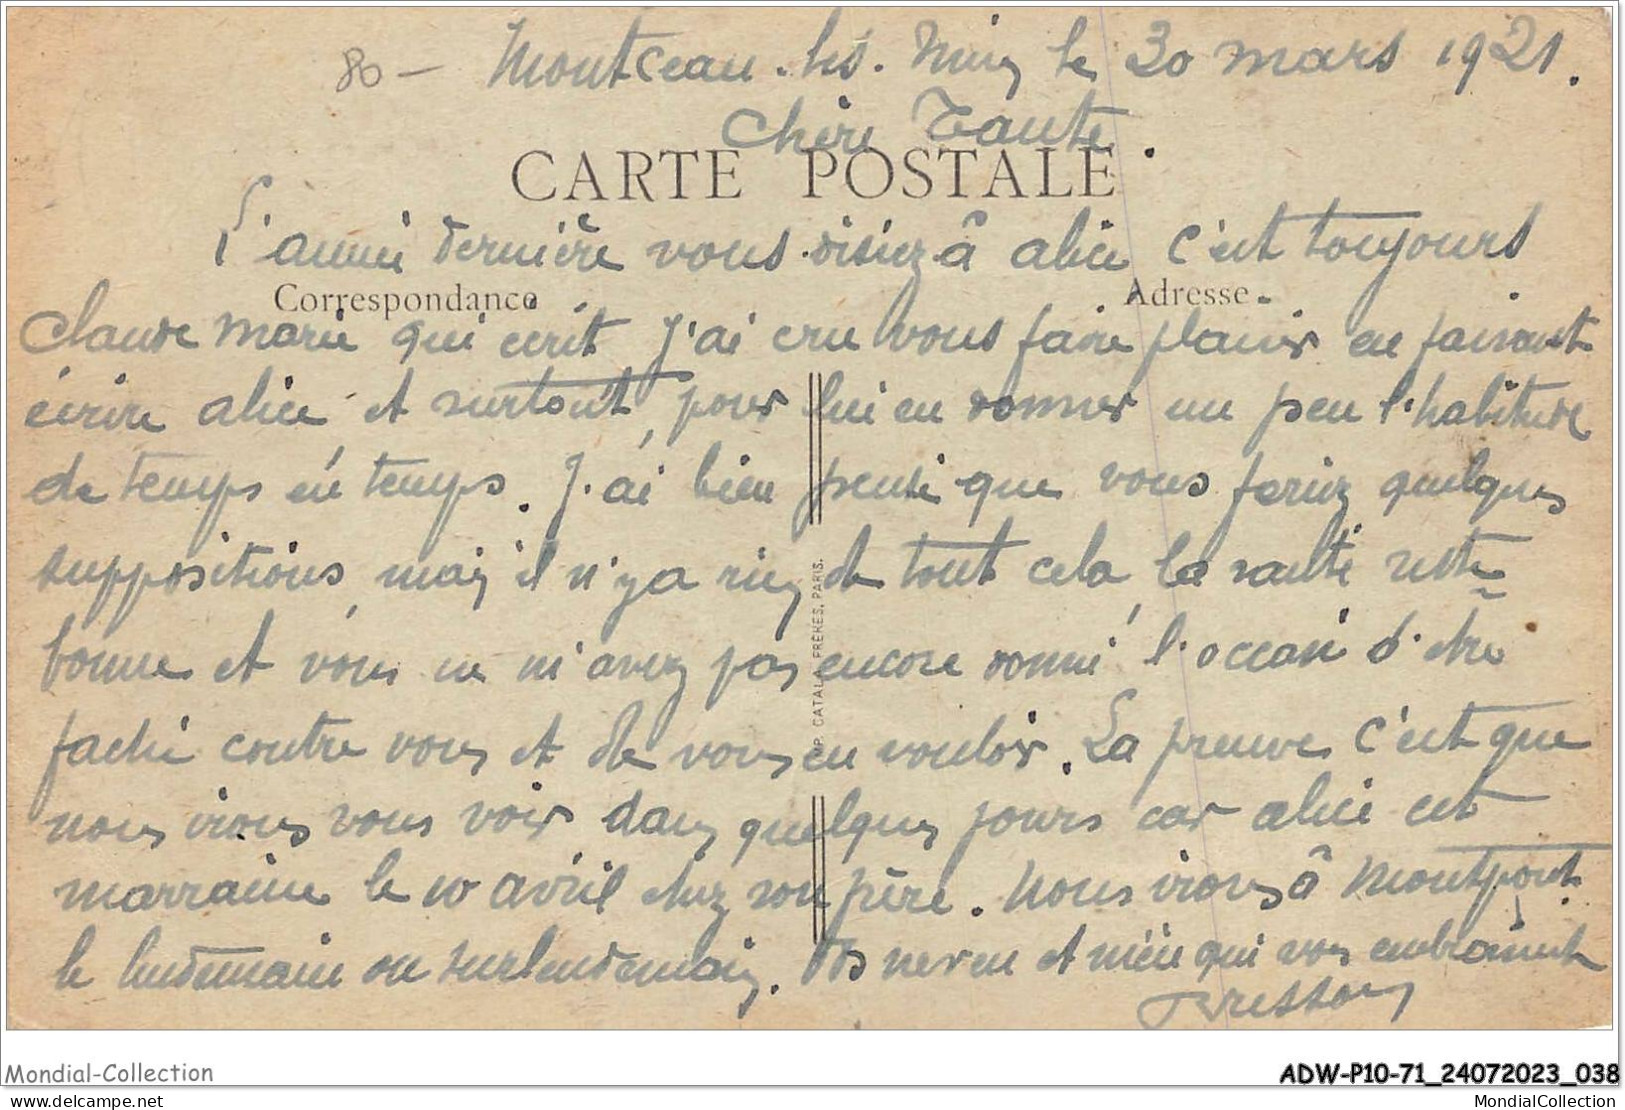 80 - Montceau-les-Min le 30 mars 1921.
Chère Tante
CARTE POSTALE
L'année dernière vous disiez à alice c'est toujours
Correspondance
Adresse
Claude marie qui ecrit J'ai cru vous faire plaisir en faisant
écrire alice et surtout, pour lui en donner un peu l'habitude
de temps en temps. J'ai bien pensé que vous feriez quelques
suppositions mais il n'y a rien de tout cela, la santé reste
bonne et vous ne m'avez pas encore donné l'occasion d'être
faché contre vous et de vous en vouloir. La preuve c'est que
nous irons vous voir dans quelques jours car alice est
marraine le 10 avril chez son père. Nous irons à Montpont
le lendemain ou surlendemain. Vos neveu et nièce qui vous embrassent
Bresson
IMP. CATALA FRÈRES, PARIS.
Mondial-Collection
ADW-P10-71_24072023_038
delcampe.net
MondialCollection